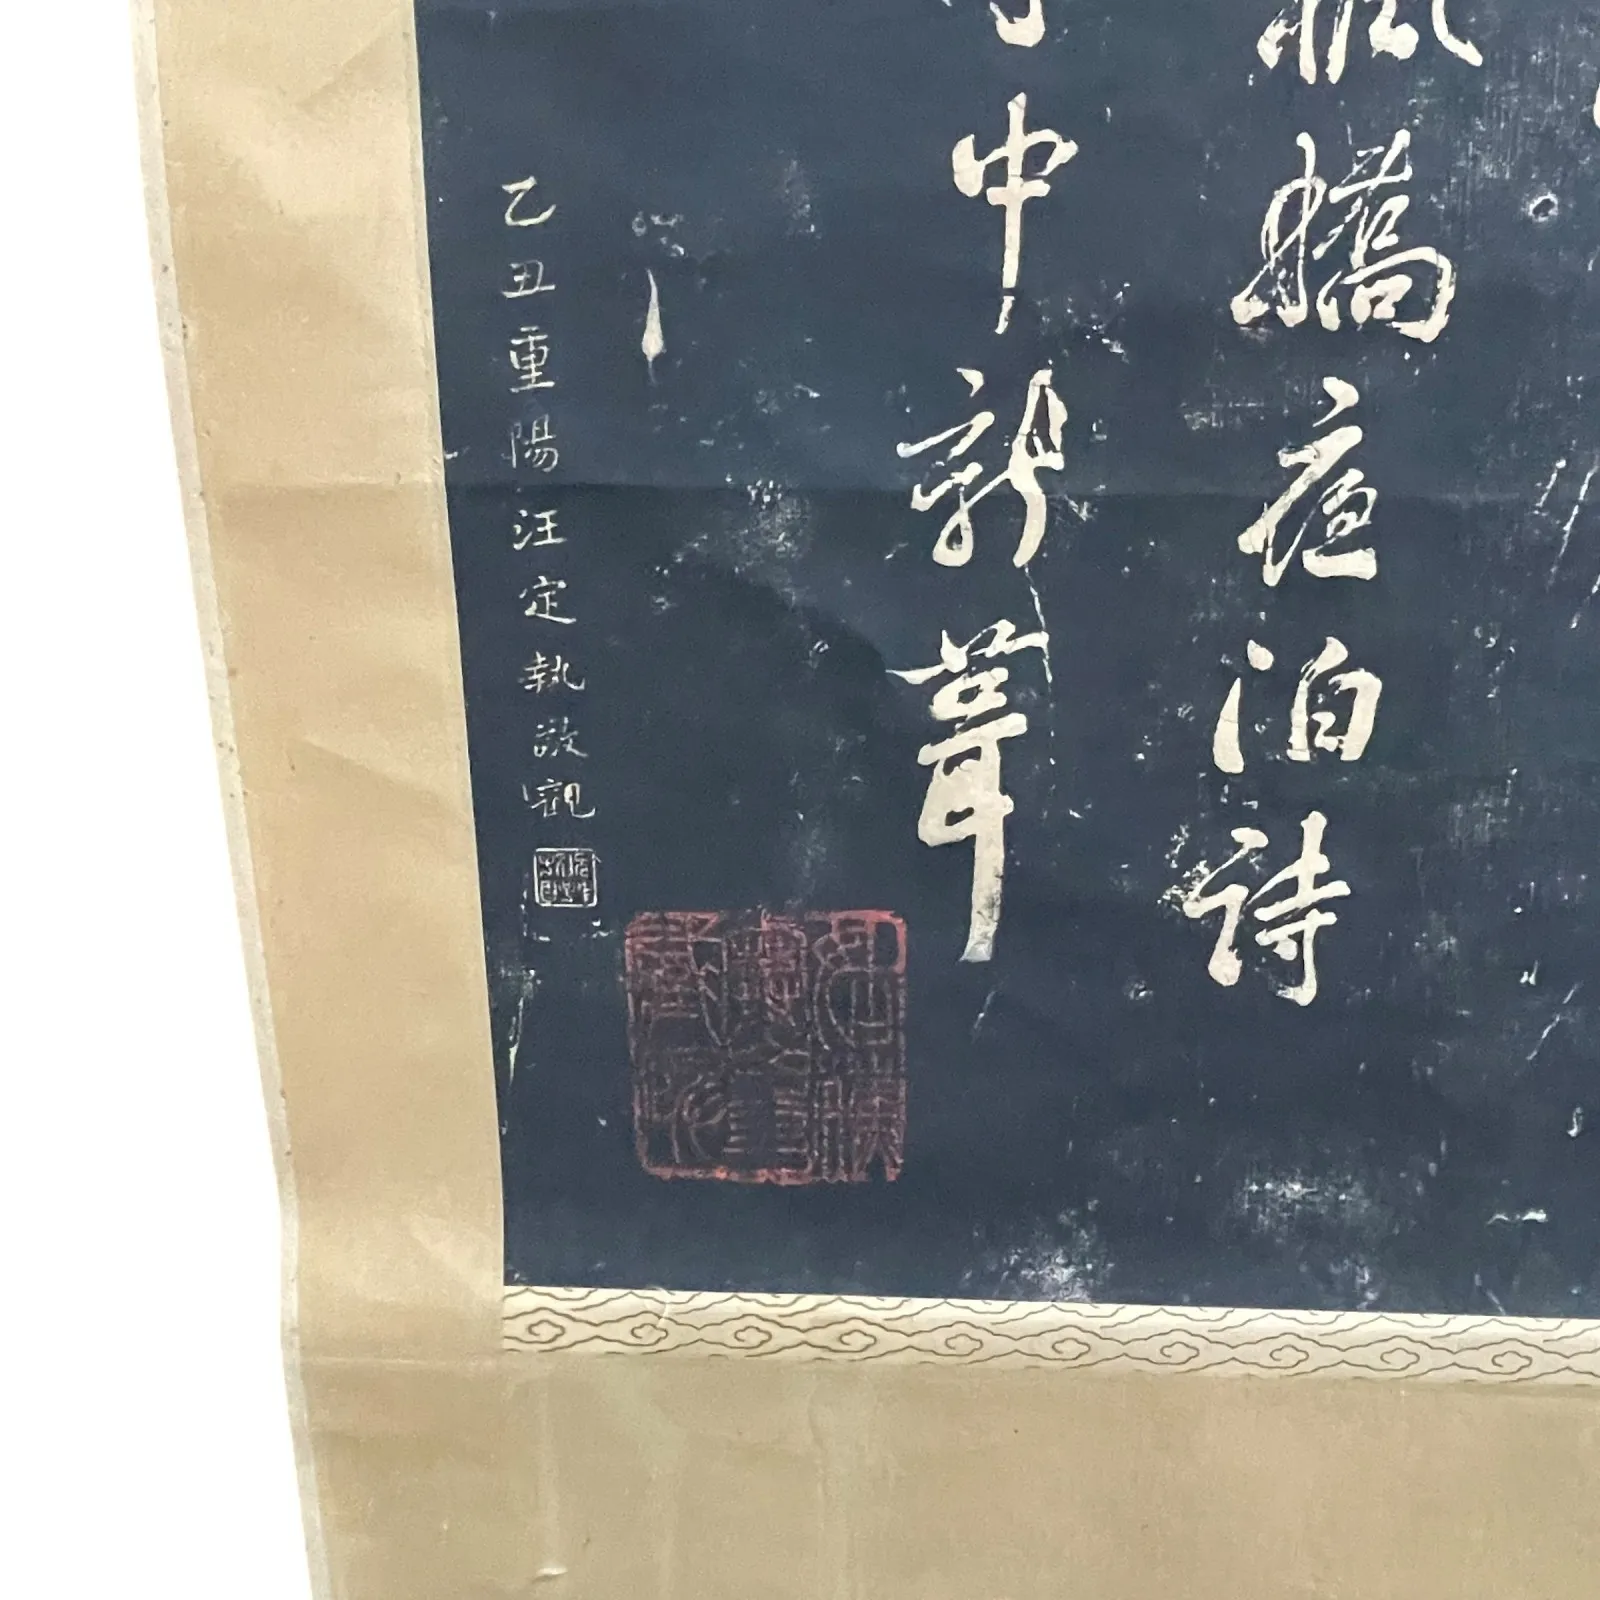 楓橋夜泊詩
中新葺
乙丑重陽汪定執敬觀